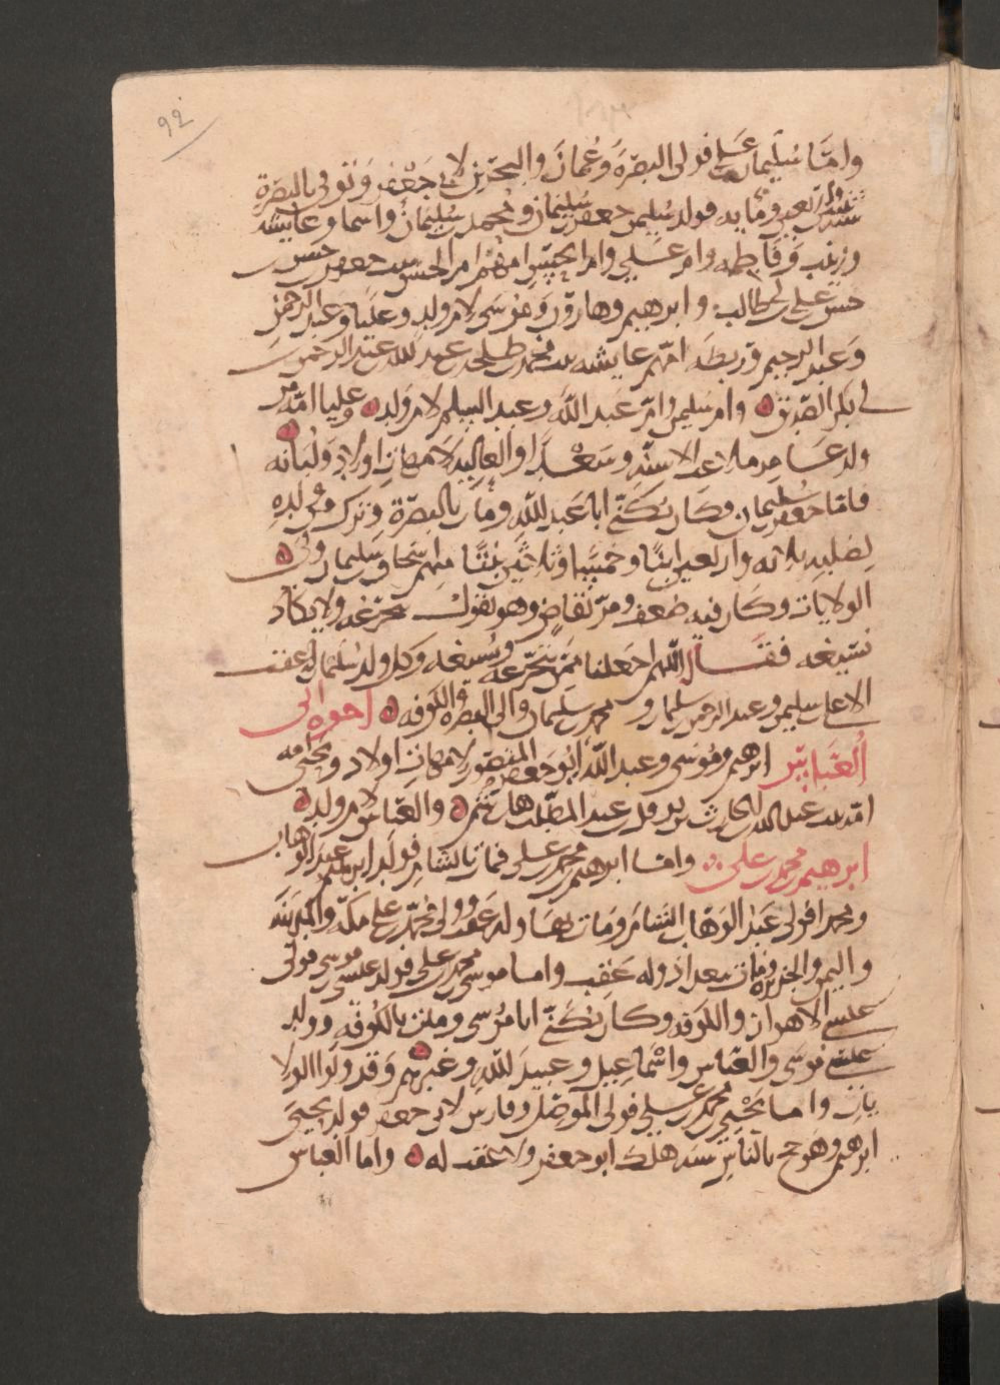 92
واما سليمان علي فولى البصرة وعمان والبحرين لابي جعفر وتوفي بالبصرة
سنة اربعين ومايه فولد سليمن جعفر سليمان ومحمد سليمان واسما وعايشه
وزينب وفاطمه وام علي وام امهم ام الحسن بنت جعفر حسن
حسن علي ابي طالب وابرهيم وهارون وموسى لام ولد وعليا وعبد الرحمن
وعبد الرحيم وريطه امهم عايشه بنت محمد طلحه عبد الله عبد الرحمن
ابي بكر الصديق وام سليمن وام عبد الله وعبد السلم لام ولد وعليا امه من
ولد عامر ملاعب الاسنه وسعدا والعاليه لامهات اولاد ولبابه
فاما جعفر سليمان وكان يكنى ابا عبد الله ومات بالبصرة وترك من ولده
لصلبه ثلاثه واربعين ابنا وخمسا وثلاثين بنتا منهم اسحاق سليمان ولي
الولايات وكان فيه ضعف ومر بقاص وهو يقول يتجرعه ولا يكاد
يسيغه فقال اللهم اجعلنا ممن يتجرعه ويسيغه وكل ولد سليمان له عقب
الا علي سليمن وعبد الرحمن سليمان ومحمد سليمان والي البصرة والكوفه اخوه ابي
العباس ابرهيم وموسى وعبد الله ابو جعفر المنصور لامهات اولاد ويحيى امه
امه بنت عبد الله الحارث نوفل عبد المطلب هاشم والعباس لام ولد
ابرهيم محمد علي واما ابرهيم محمد علي فمات بالشام فولد ابرهيم عبد الوهاب
ومحمدا فولى عبد الوهاب الشام ومات بها وله عقب وولي محمد علي مكه والمدينه
واليمن والجزيره ومات ببغداد وله عقب واما موسى محمد علي فولد عيسى موسى فولى
عيسى الاهواز والكوفه وكان يكنى ابا موسى ومات بالكوفه وولد
عيسى موسى والعباس واسماعيل وعبيد الله وغيرهم وقد ولوا الولا
يات واما يحيى محمد علي فولى الموصل وفارس لابي جعفر فولد يحيى
ابرهيم وهو حج بالناس سنه هلك ابو جعفر ولا عقب له واما العباس